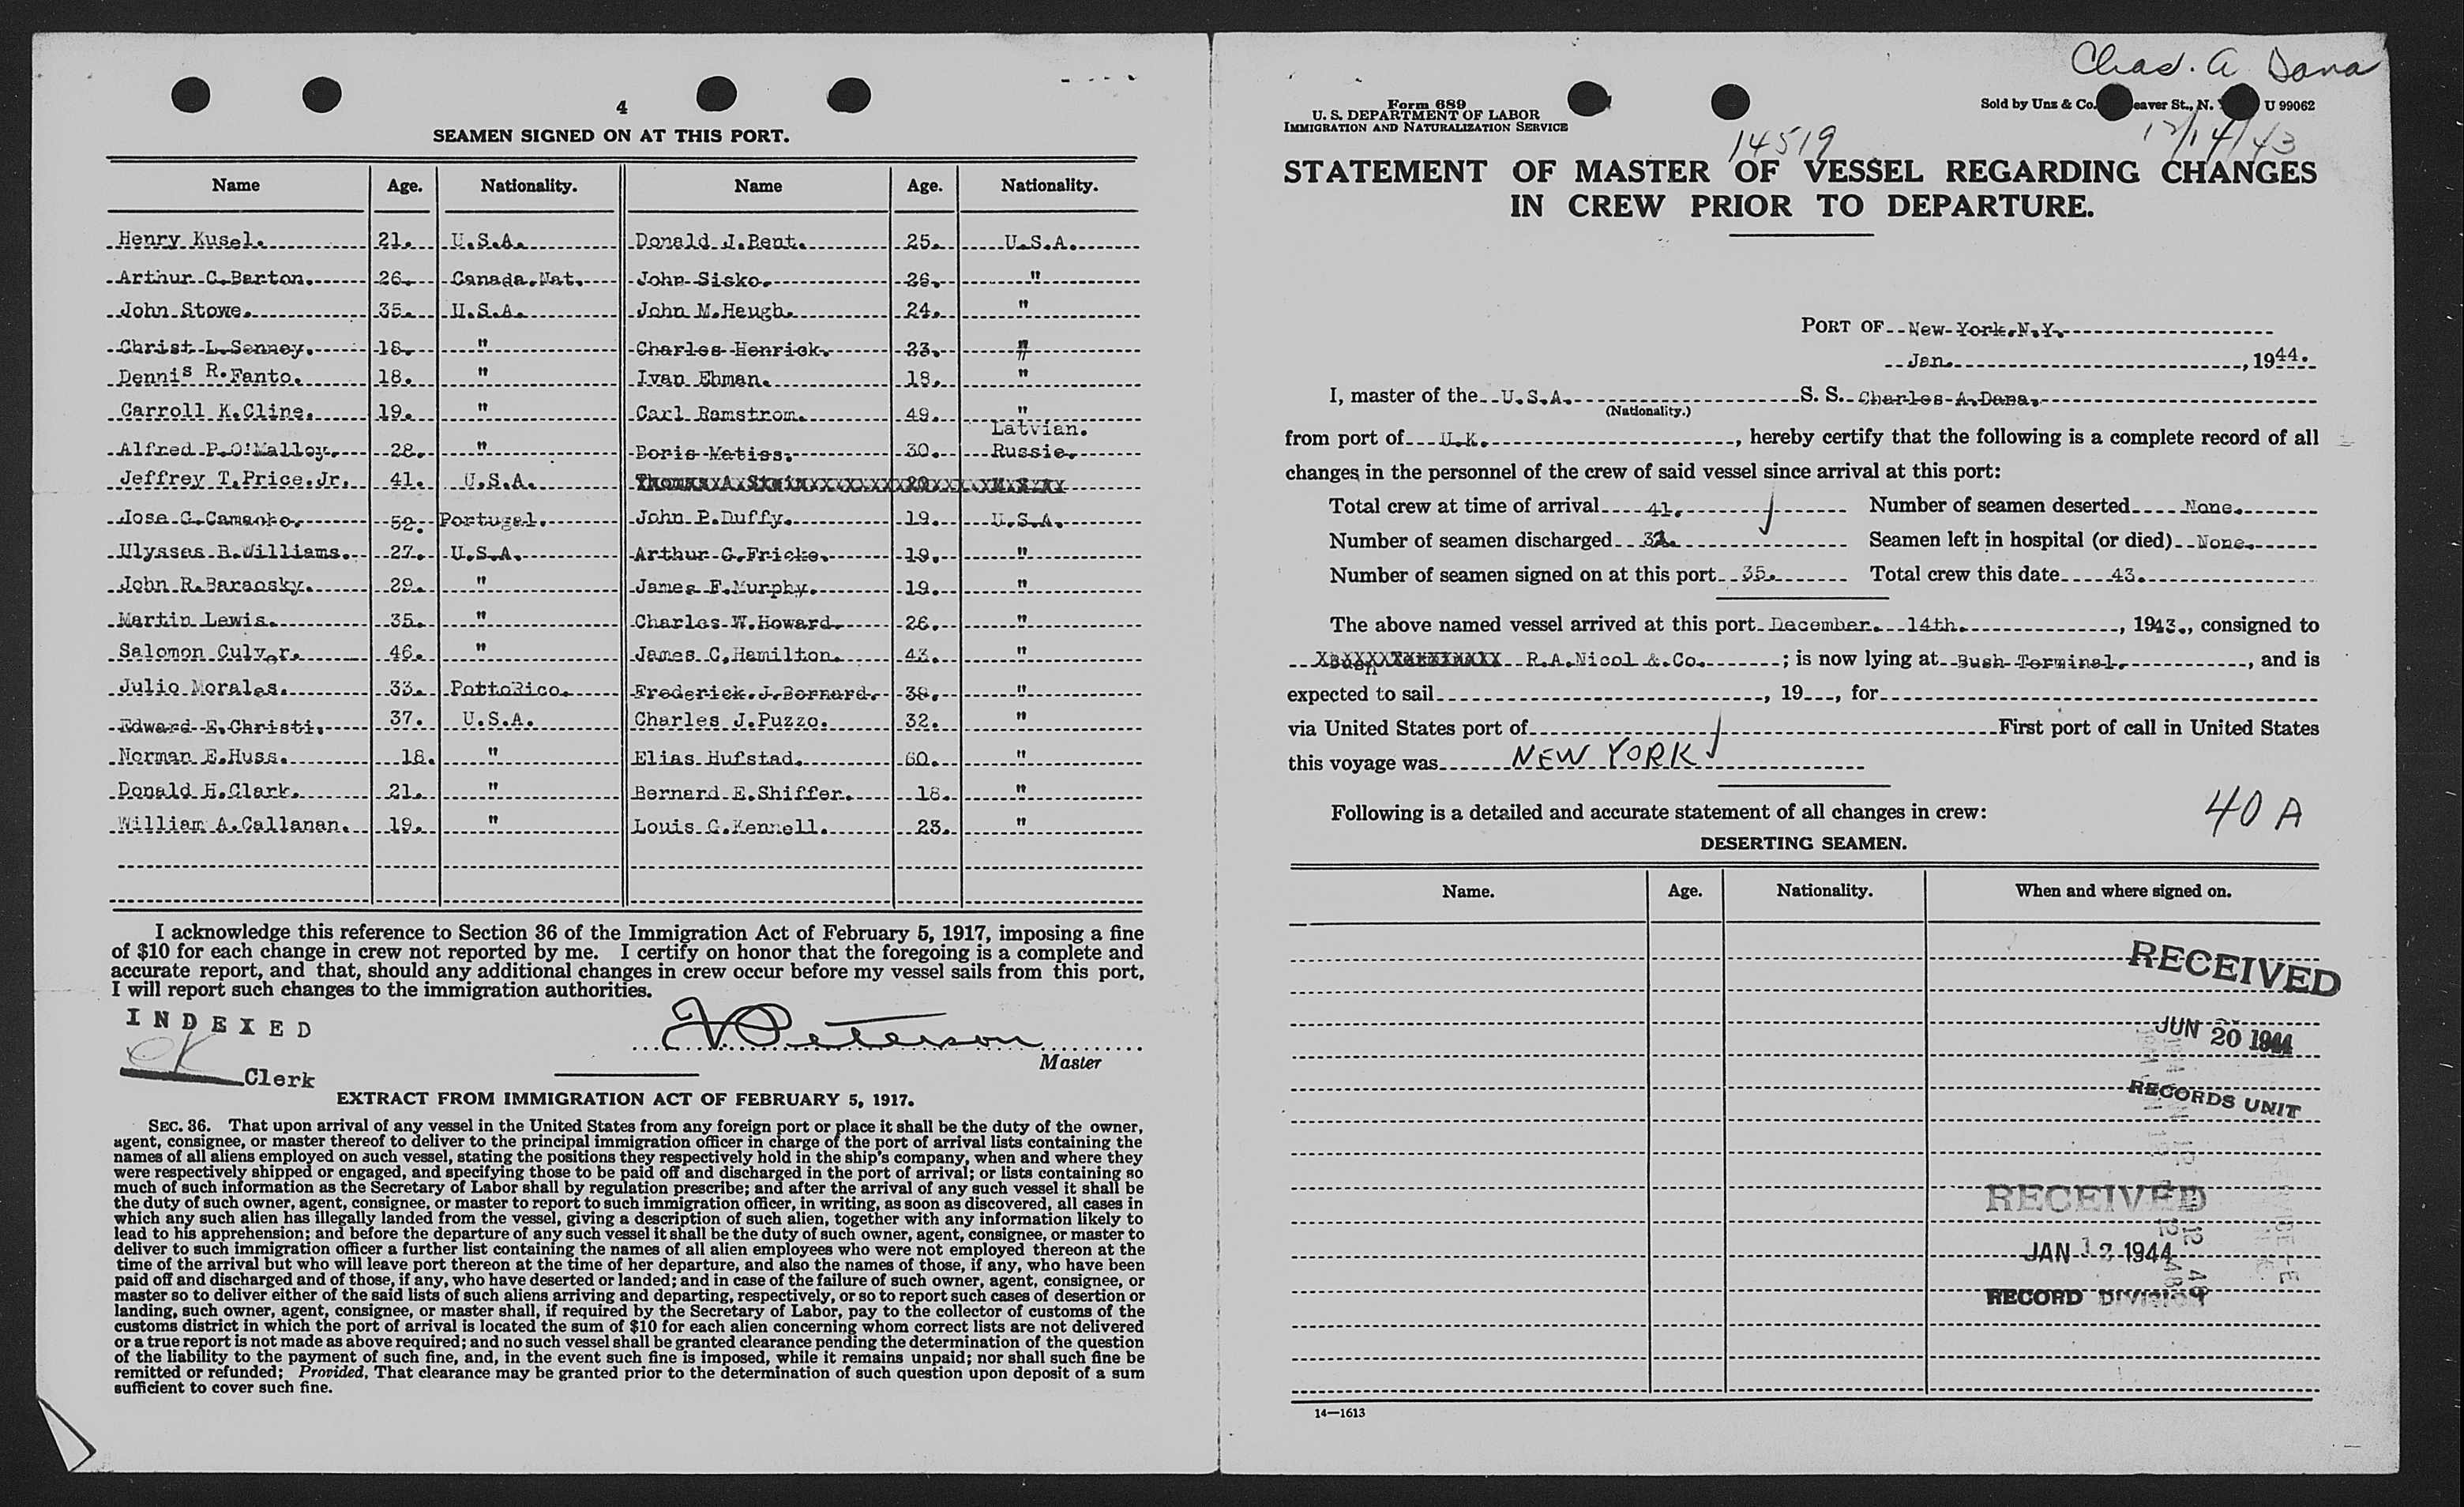 4
SEAMEN SIGNED ON AT THIS PORT.
Name Age. Nationality. Name Age. Nationality.
Henry Kusel. 21. U.S.A. Donald J.Pent. 25. U.S.A.
Arthur C.Barton. 26. Canada.Nat. John Sisko. 26. "
John Stowe. 35. U.S.A. John M.Haugh. 24. "
Christ L.Senney. 18. " Charles Henrick. 23. "
Dennis R.Fanto. 18. " Ivan Ehman. 18. "
Carroll K.Cline. 19. " Carl Ramstrom. 49. "
Latvian.
Alfred P.O'Malloy. 28. " Boris Matiss. 30. Russie.
Jeffrey T.Price.Jr. 41. U.S.A.
Jose G.Camacho. 52. Portugal. John P.Duffy. 19. U.S.A.
Ulysses B.Williams. 27. U.S.A. Arthur G.Fricke. 19. "
John R.Baraosky. 29. " James F.Murphy. 19. "
Martin Lewis. 35. " Charles W.Howard. 26. "
Salomon Culver. 46. " James C.Hamilton. 43. "
Julio Morales. 33. PottoRico. Frederick.J.Bornard. 38. "
Edward E.Christi. 37. U.S.A. Charles J.Puzzo. 32. "
Norman E.Huss. 18. " Elias Hufstad. 60. "
Donald H.Clark. 21. " Bernard E.Shiffer. 18. "
William A.Callanan. 19. " Louis G.Kennell. 23. "
I acknowledge this reference to Section 36 of the Immigration Act of February 5, 1917, imposing a fine
of $10 for each change in crew not reported by me. I certify on honor that the foregoing is a complete and
accurate report, and that, should any additional changes in crew occur before my vessel sails from this port,
I will report such changes to the immigration authorities.
INDEXED
Clerk
Peterson
Master
EXTRACT FROM IMMIGRATION ACT OF FEBRUARY 5, 1917.
SEC. 36. That upon arrival of any vessel in the United States from any foreign port or place it shall be the duty of the owner,
agent, consignee, or master thereof to deliver to the principal immigration officer in charge of the port of arrival lists containing the
names of all aliens employed on such vessel, stating the positions they respectively hold in the ship's company, when and where they
were respectively shipped or engaged, and specifying those to be paid off and discharged in the port of arrival; or lists containing so
much of such information as the Secretary of Labor shall by regulation prescribe; and after the arrival of any such vessel it shall be
the duty of such owner, agent, consignee, or master to report to such immigration officer, in writing, as soon as discovered, all cases in
which any such alien has illegally landed from the vessel, giving a description of such alien, together with any information likely to
lead to his apprehension; and before the departure of any such vessel it shall be the duty of such owner, agent, consignee, or master to
deliver to such immigration officer a further list containing the names of all alien employees who were not employed thereon at the
time of the arrival but who will leave port thereon at the time of her departure, and also the names of those, if any, who have been
paid off and discharged and of those, if any, who have deserted or landed; and in case of the failure of such owner, agent, consignee, or
master so to deliver either of the said lists of such aliens arriving and departing, respectively, or so to report such cases of desertion or
landing, such owner, agent, consignee, or master shall, if required by the Secretary of Labor, pay to the collector of customs of the
customs district in which the port of arrival is located the sum of $10 for each alien concerning whom correct lists are not delivered
or a true report is not made as above required; and no such vessel shall be granted clearance pending the determination of the question
of the liability to the payment of such fine, and, in the event such fine is imposed, while it remains unpaid; nor shall such fine be
remitted or refunded; Provided, That clearance may be granted prior to the determination of such question upon deposit of a sum
sufficient to cover such fine.
Chas. A Dana
Form 689
U. S. DEPARTMENT OF LABOR
IMMIGRATION AND NATURALIZATION SERVICE
Sold by Unz & Co. eaver St., N. U 99062
14519
12/14/43
STATEMENT OF MASTER OF VESSEL REGARDING CHANGES
IN CREW PRIOR TO DEPARTURE.
PORT OF New York.N.Y.
Jan. , 1944.
I, master of the U.S.A. S. S. Charles A.Dana.
(Nationality.)
from port of U.K. , hereby certify that the following is a complete record of all
changes in the personnel of the crew of said vessel since arrival at this port:
Total crew at time of arrival 41. Number of seamen deserted None.
Number of seamen discharged Seamen left in hospital (or died) None.
Number of seamen signed on at this port 35. Total crew this date 43.
The above named vessel arrived at this port December. 14th. , 1943., consigned to
R.A.Nicol &.Co. ; is now lying at Bush Terminal. , and is
expected to sail , 19 , for
via United States port of First port of call in United States
this voyage was NEW YORK
Following is a detailed and accurate statement of all changes in crew:
40 A
DESERTING SEAMEN.
Name. Age. Nationality. When and where signed on.
RECEIVED
JUN 20 1944
RECORDS UNIT
RECEIVED
JAN 12 1944
RECORD DIVISION
14—1613